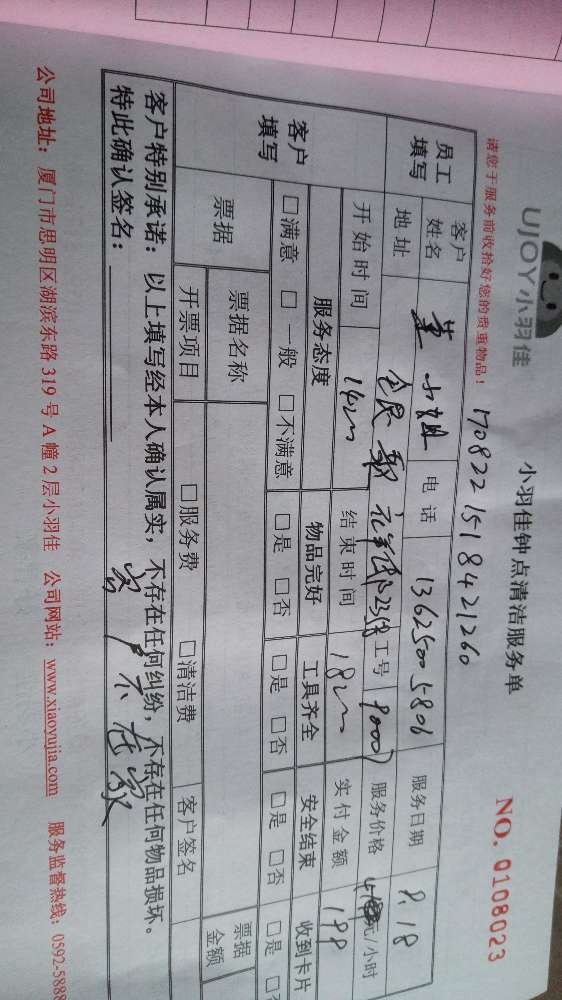 UJOY小羽佳
小羽佳钟点清洁服务单
NO. 0108023
请您于服务前收拾好您的贵重物品！
170822151842126​0
员工填写 客户姓名 小姐 电话 13625005806 服务日期 8.18
地址 工号 服务价格 元/小时
开始时间 结束时间 实付金额 188
客户填写 服务态度 物品完好 工具齐全 安全结束 收到卡片
□满意 □一般 □不满意 □是 □否 □是 □否 □是 □否 □是 □否
票据 票据名称 票据金额
开票项目 □服务费 □清洁费 客户签名
客户特别承诺：以上填写经本人确认属实，不存在任何纠纷，不存在任何物品损坏。
特此确认签名： 客户不在家
公司地址：厦门市思明区湖滨东路319号A幢2层小羽佳 公司网站：www.xiaoyujia.com 服务监督热线：0592-5888